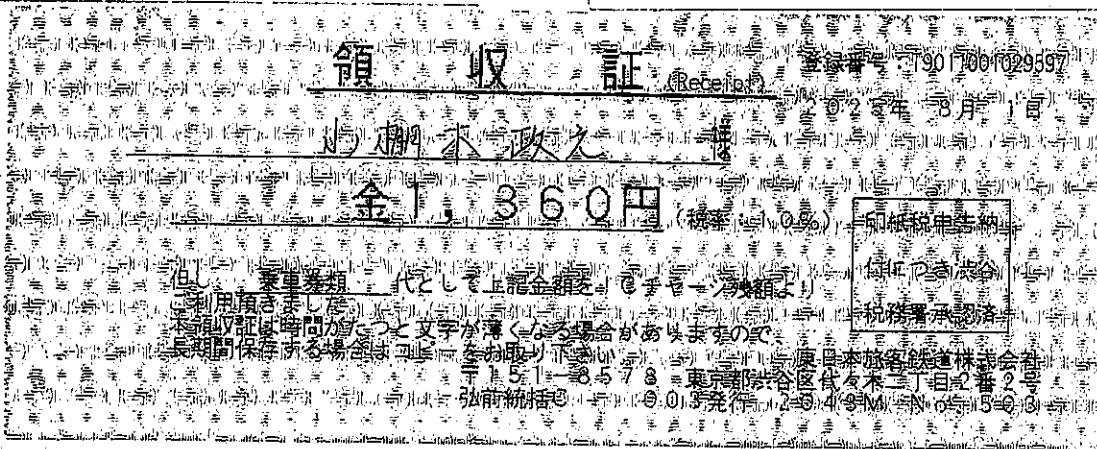 領収証 (Receipt)
登録番号:T9011001029597
2025年 8月 1日
小棚木政之 様
金1,360円 (税率:10%)
印紙税申告納
付につき渋谷
税務署承認済
但し 乗車券類 代として上記金額をICチャージ残額より
ご利用頂きました
本領収証は時間がたつと文字が薄くなる場合がありますので、
長期間保存する場合はコピーをお取り下さい
東日本旅客鉄道株式会社
〒151-8578 東京都渋谷区代々木二丁目2番2号
弘前統括C 003発行 2043M No.503